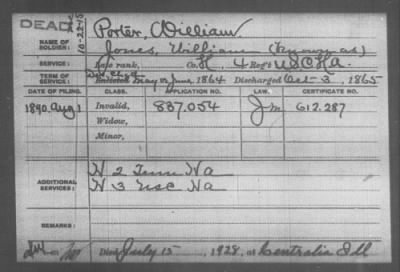 DEAD
10-22-15
NAME OF SOLDIER: Porter, William
Jones, William (known as)
SERVICE: Late rank, Co. H, 4 Reg't U.S.C.H.A.
TERM OF SERVICE: Enlisted May or June, 1864 Discharged Oct-3, 1865
DATE OF FILING. CLASS. APPLICATION NO. LAW. CERTIFICATE NO.
1890, Aug 1 Invalid, 837.054 612.287
Widow,
Minor,
ADDITIONAL SERVICES: H 2 Tenn
H 3 USC
REMARKS:
Died July 15, 1928, at Centralia Ill